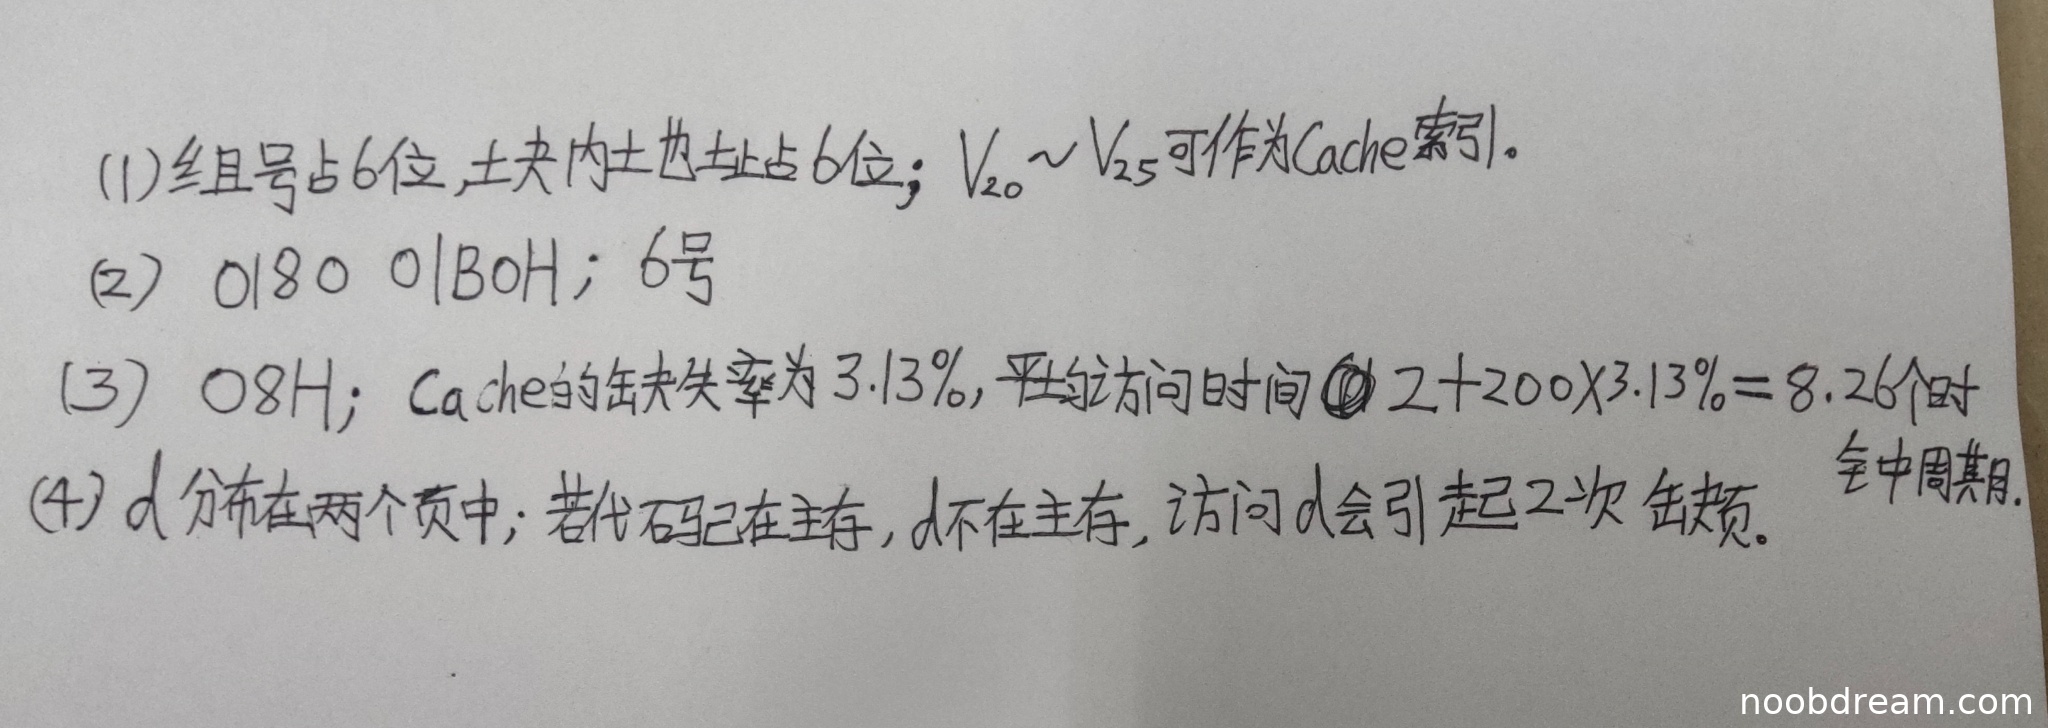 (1)组号占6位,块内地址占6位；V20~V25可作为Cache索引。
(2) 0180 01B0H；6号
(3) 08H；Cache的缺失率为3.13%,平均访问时间 2+200×3.13%=8.26个时
钟周期.
(4) d分布在两个页中；若代码已在主存,d不在主存,访问d会引起2次缺页。
noobdream.com